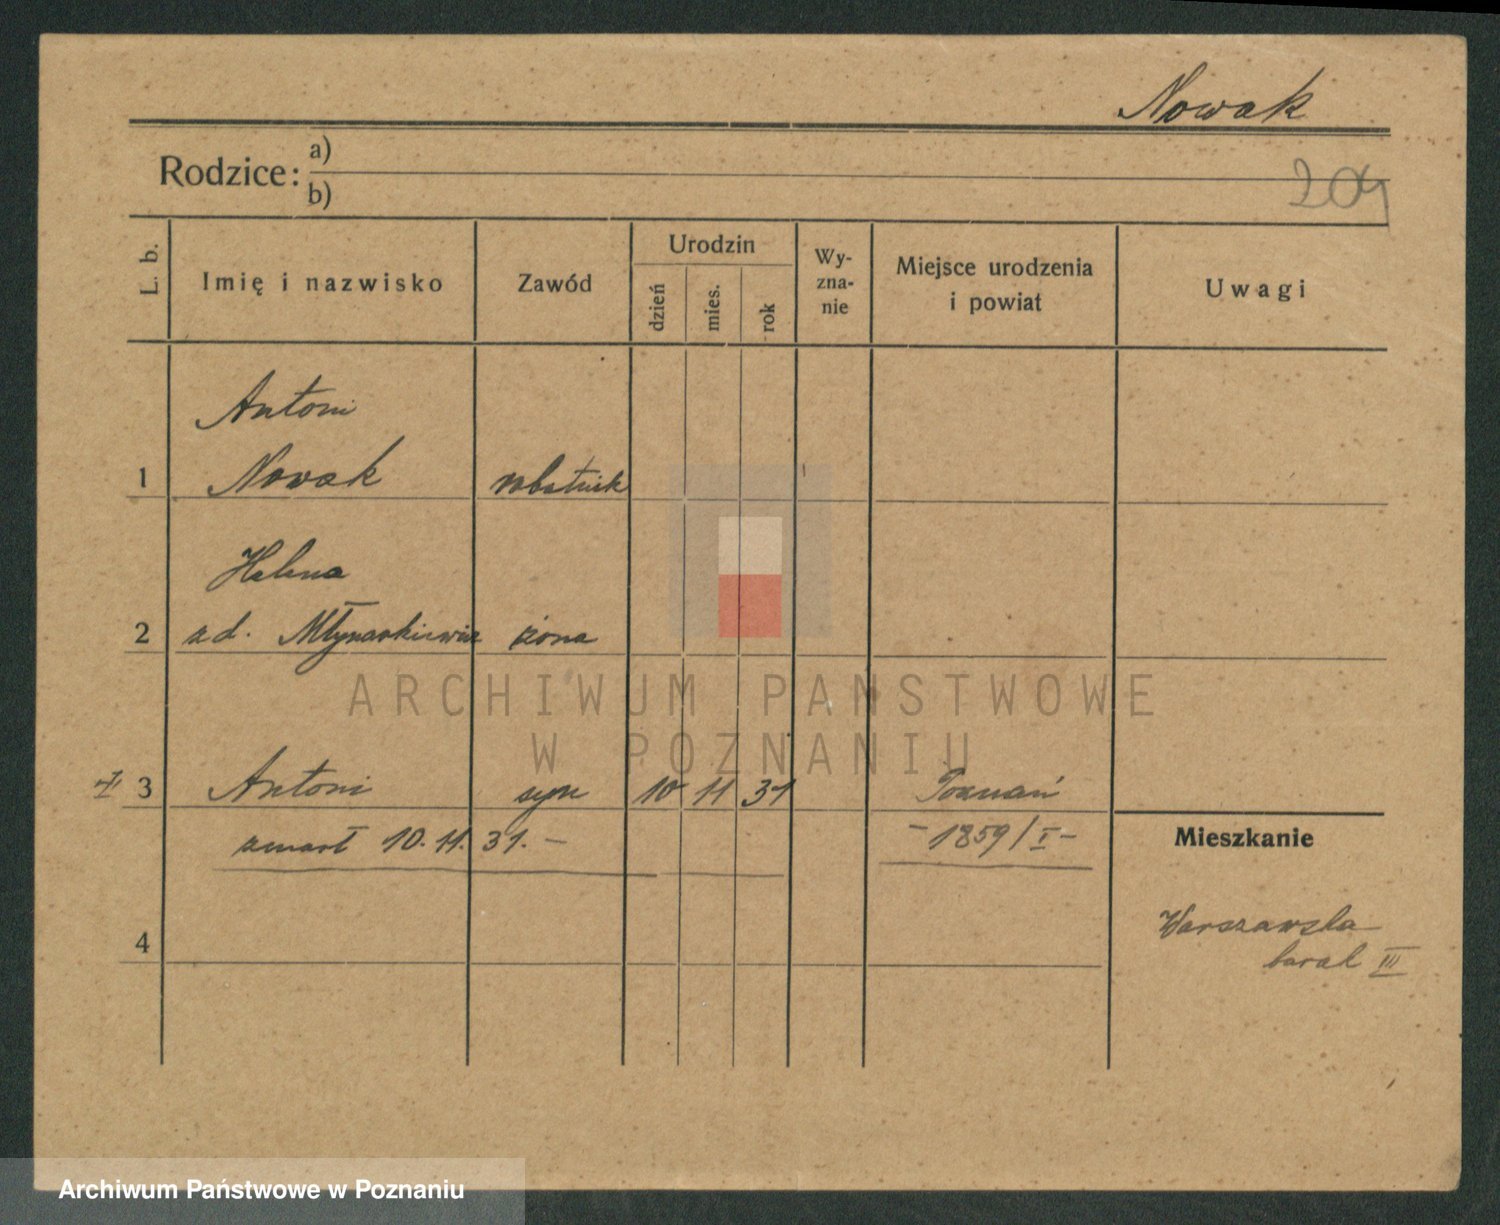 Nowak
Rodzice: a)
b)
204
L. b.
Imię i nazwisko
Zawód
Urodzin
dzień
mies.
rok
Wy-
zna-
nie
Miejsce urodzenia
i powiat
Uwagi
Antoni
1 Nowak robotnik
Helena
2 zd. Młynarkiewicz żona
3 Antoni syn 10 11 31 Poznań
zmarł 10. 11. 31. –
– 1859/I –
Mieszkanie
4
Warszawska
barak III
ARCHIWUM PAŃSTWOWE
W POZNANIU
Archiwum Państwowe w Poznaniu